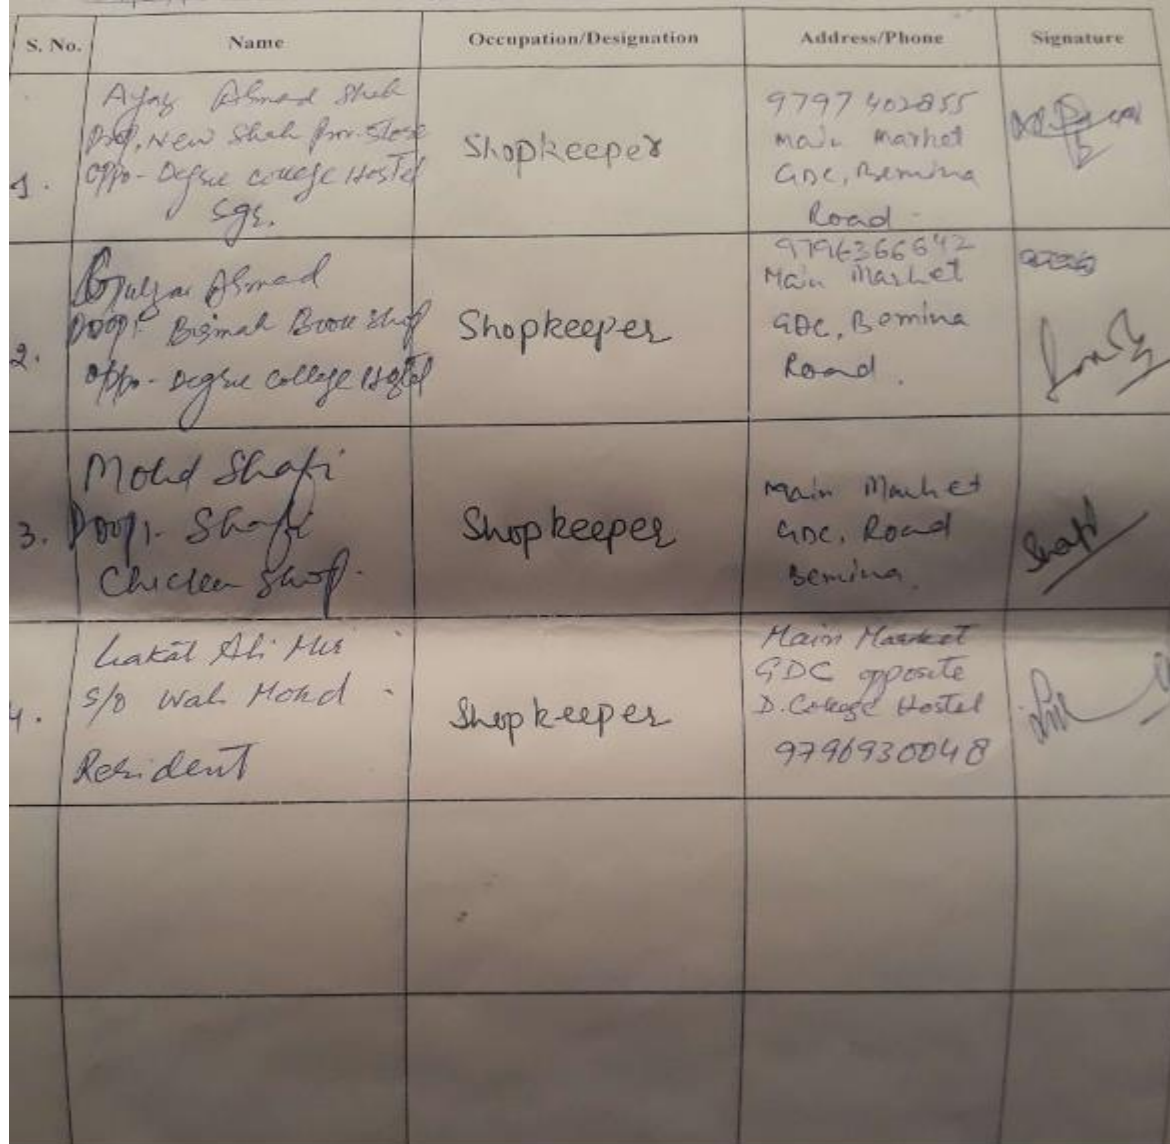 S. No. Name Occupation/Designation Address/Phone Signature
1.
Ajaz Ahmad Shah
Prop. New Shah Prov. Store
Oppo- Degree College Hostel
Sgr.
Shopkeeper
9797402855
Main Market
GDC, Bemina
Road
2.
Gulzar Ahmad
Prop: Bismah Book Shop
Oppo- Degree College Hostel
Shopkeeper
9796366642
Main Market
GDC, Bemina
Road.
3.
Mohd Shafi
Prop:- Shafi
Chicken Shop.
Shopkeeper
Main Market
GDC, Road
Bemina.
Shafi
4.
Ali Mir
S/o Wali Mohd
Resident
Shopkeeper
Main Market
GDC opposite
D. College Hostel
9796930048